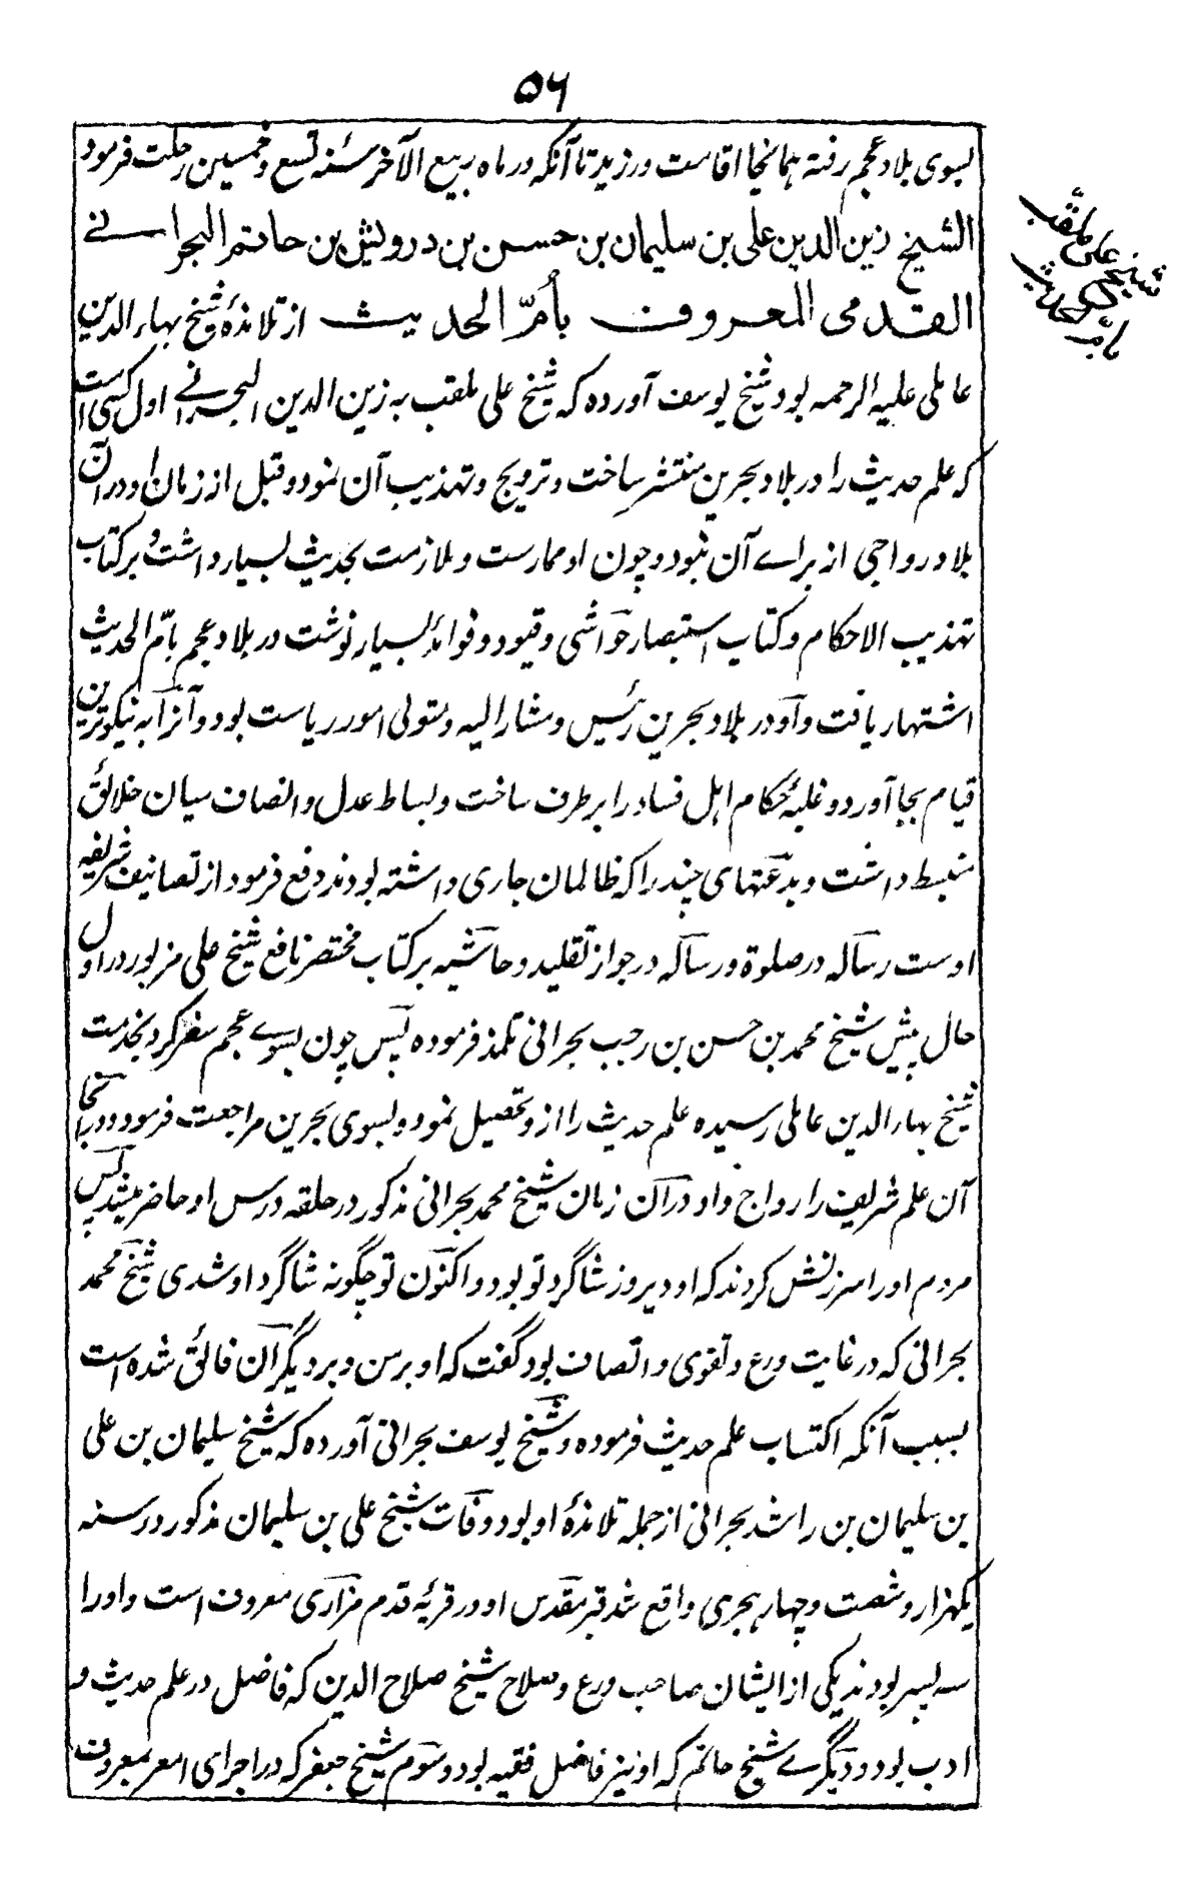 ۵۶
بسوی بلاد عجم رفته همانجا اقامت ورزید تا آنکه در ماه ربیع الآخر سنه تسع و خمسین رحلت فرمود
الشیخ زین الدین علی بن سلیمان بن حسن بن درویش بن حاتم البحرانے
القدمی المعروف بأمّ الحدیث از تلامذهٔ شیخ بهاء الدین
عاملی علیه الرحمه بود شیخ یوسف آورده که شیخ علی ملقب به زین الدین البحرانے اول کسی است
که علم حدیث را در بلاد بحرین منتشر ساخت و ترویج و تهذیب آن نمود و قبل از زمان او در آن
بلاد رواجی از براے آن نبود و چون او ممارست و ملازمت بحدیث بسیار داشت و بر کتاب
تهذیب الاحکام و کتاب استبصار حواشی و قیود و فوائد بسیار نوشت در بلاد عجم بامّ الحدیث
اشتهار یافت و او در بلاد بحرین رئیس و مشار الیه و متولی امور ریاست بود و آنرا به نیکوترین
قیام بجا آورد و غلبهٔ حکام اهل فساد را برطرف ساخت و بساط عدل و انصاف میان خلائق
منبسط داشت و بدعتهای چند را که ظالمان جاری داشته بودند دفع فرمود از تصانیف شریفه
اوست رساله در صلوة و رساله در جواز تقلید و حاشیه بر کتاب مختصر نافع شیخ علی مزبور در اول
حال پیش شیخ محمد بن حسن بن رجب بحرانی تلمذ فرموده پس چون بسوے عجم سفر کرد بخدمت
شیخ بهاء الدین عاملی رسیده علم حدیث را از و تحصیل نمود و بسوی بحرین مراجعت فرمود و در آنجا
آن علم شریف را رواج داد و در آن زمان شیخ محمد بحرانی مذکور در حلقه درس او حاضر میشد پس
مردم او را سرزنش کردند که او دیروز شاگرد تو بود و اکنون تو چگونه شاگرد او شدی شیخ محمد
بحرانی که در غایت ورع و تقوی و انصاف بود گفت که او بر من و بر دیگران فائق شده است
بسبب آنکه اکتساب علم حدیث فرموده و شیخ یوسف بحرانی آورده که شیخ سلیمان بن علی
بن سلیمان بن راشد بحرانی از جمله تلامذهٔ او بود و وفات شیخ علی بن سلیمان مذکور در سنه
یکهزار و شصت و چهار هجری واقع شد قبر مقدس او در قریهٔ قدم مزاری معروف است و او را
سه پسر بودند یکی از ایشان صاحب ورع و صلاح شیخ صلاح الدین که فاضل در علم حدیث و
ادب بود و دیگرے شیخ حاتم که او نیز فاضل فقیه بود و سوم شیخ جعفر که در اجرای امر بمعروف
شیخ علی ملقب
بامّ الحدیث